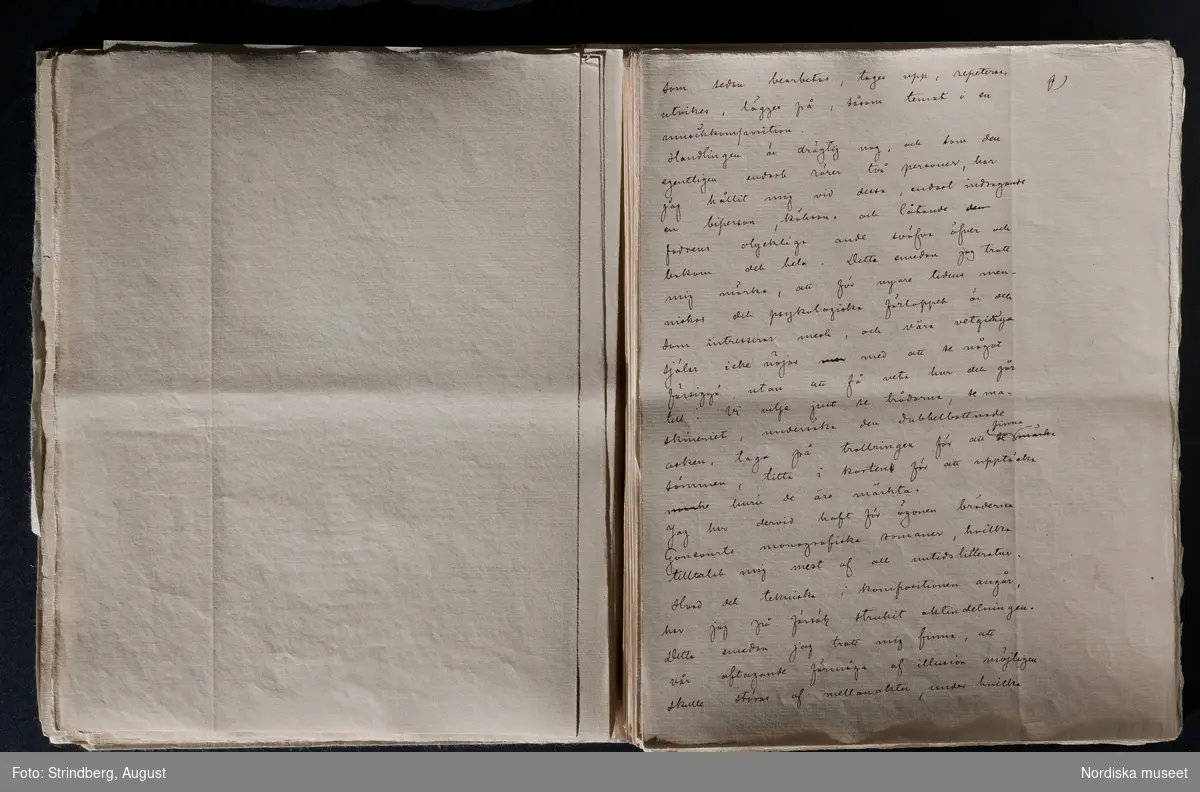 som sedan bearbetas, tages upp, repeteras,
9)
utvikes, lägges på, såsom temat i en
musikkomposition.
Handlingen är dräglig nog, och som den
egentligen endast rörer två personer, har
jag hållit mig vid dessa, endast indragande
en biperson, köksan, och låtande den
fadrens olyckliga ande sväfva öfver och
bakom det hela. Detta emedan jag trott
mig märka, att för nyare tidens men-
niskor det psykologiska förloppet är det
som intresserar mest, och våra vetgiriga
själar icke nöjas med att se något
försiggå utan att få veta hur det går
till! Vi vilja just se trådarna, se ma-
skineriet, undersöka den dubbelbottnade
asken, taga på trollringen för att finna
sömmen, titta i korten för att upptäcka
huru de äro märkta.
Jag har dervid haft för ögonen bröderna
Goncourts monografiska romaner, hvilka
tilltalat mig mest af all nutidslitteratur.
Hvad det tekniska i kompositionen angår,
har jag på försök strukit aktindelningen.
Detta emedan jag trott mig finna, att
vår aftagande förmåga af illusion möjligen
skulle störas af mellanakter, under hvilka
Foto: Strindberg, August
Nordiska museet